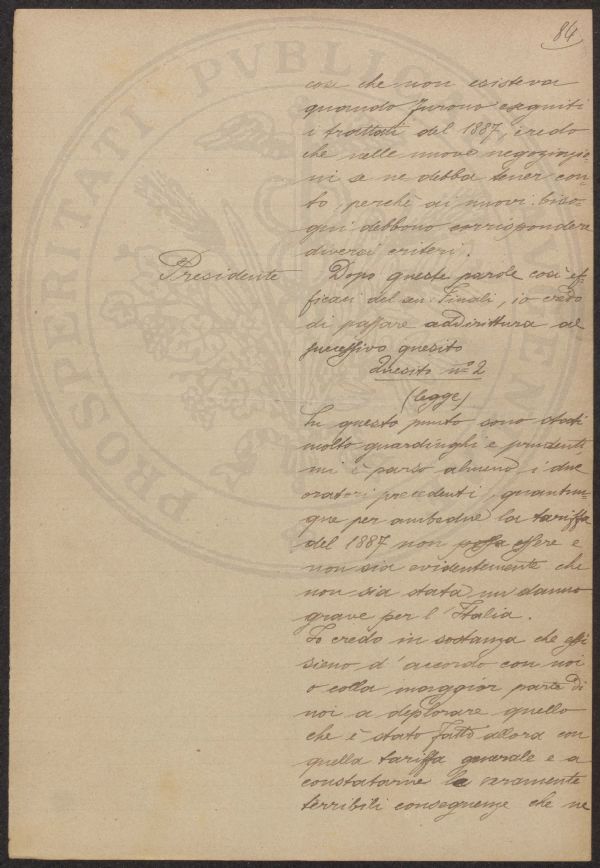 84
PROSPERITATI PVBLICAE
cosa che non esisteva
quando furono eseguiti
i trattati del 1887, credo
che nelle nuove negoziazio-
ni se ne debba tener con-
to, perchè ai nuovi biso-
gni debbono corrispondere
diversi criteri.
Presidente
Dopo queste parole così ef-
ficaci del sen. Finali, io credo
di passare addirittura al
successivo quesito
Quesito nº 2
(legge)
In questo punto sono stati
molto guardinghi e prudenti
mi è parso almeno, i due
oratori precedenti, quantun-
que per ambedue la tariffa
del 1887 non possa essere e
non sia evidentemente che
non sia stata un danno
grave per l'Italia.
Io credo in sostanza che essi
sieno d'accordo con noi
o colla maggior parte di
noi a deplorare quello
che è stato fatto allora con
quella tariffa generale e a
constatarne le veramente
terribili conseguenze che ne